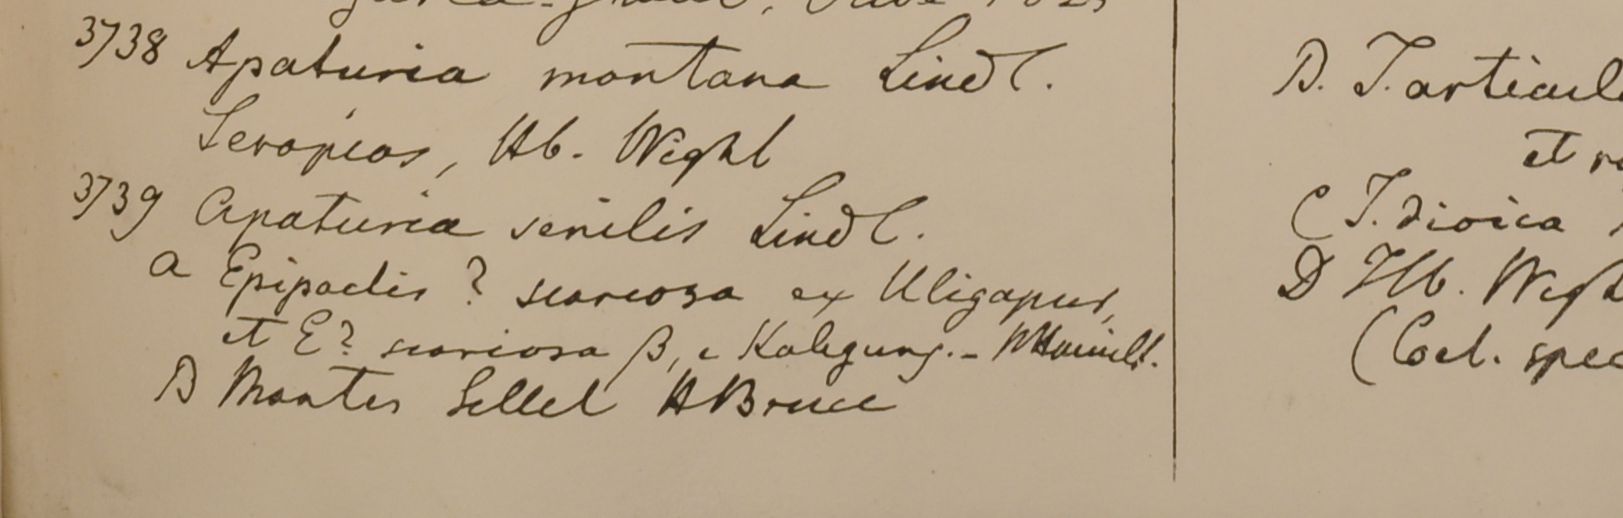 3738 Apaturia montana Lindl.
Serapias, Hb. Wight
3739 Apaturia senilis Lindl.
a Epipactis ? scariosa ex Uligapur,
et E? scariosa β, e Kaligung. - Hamilt.
B Montes Sillet HBruce
B. T. articul
et
C T. dioica
D Hb. Wigh
(Coel. spec